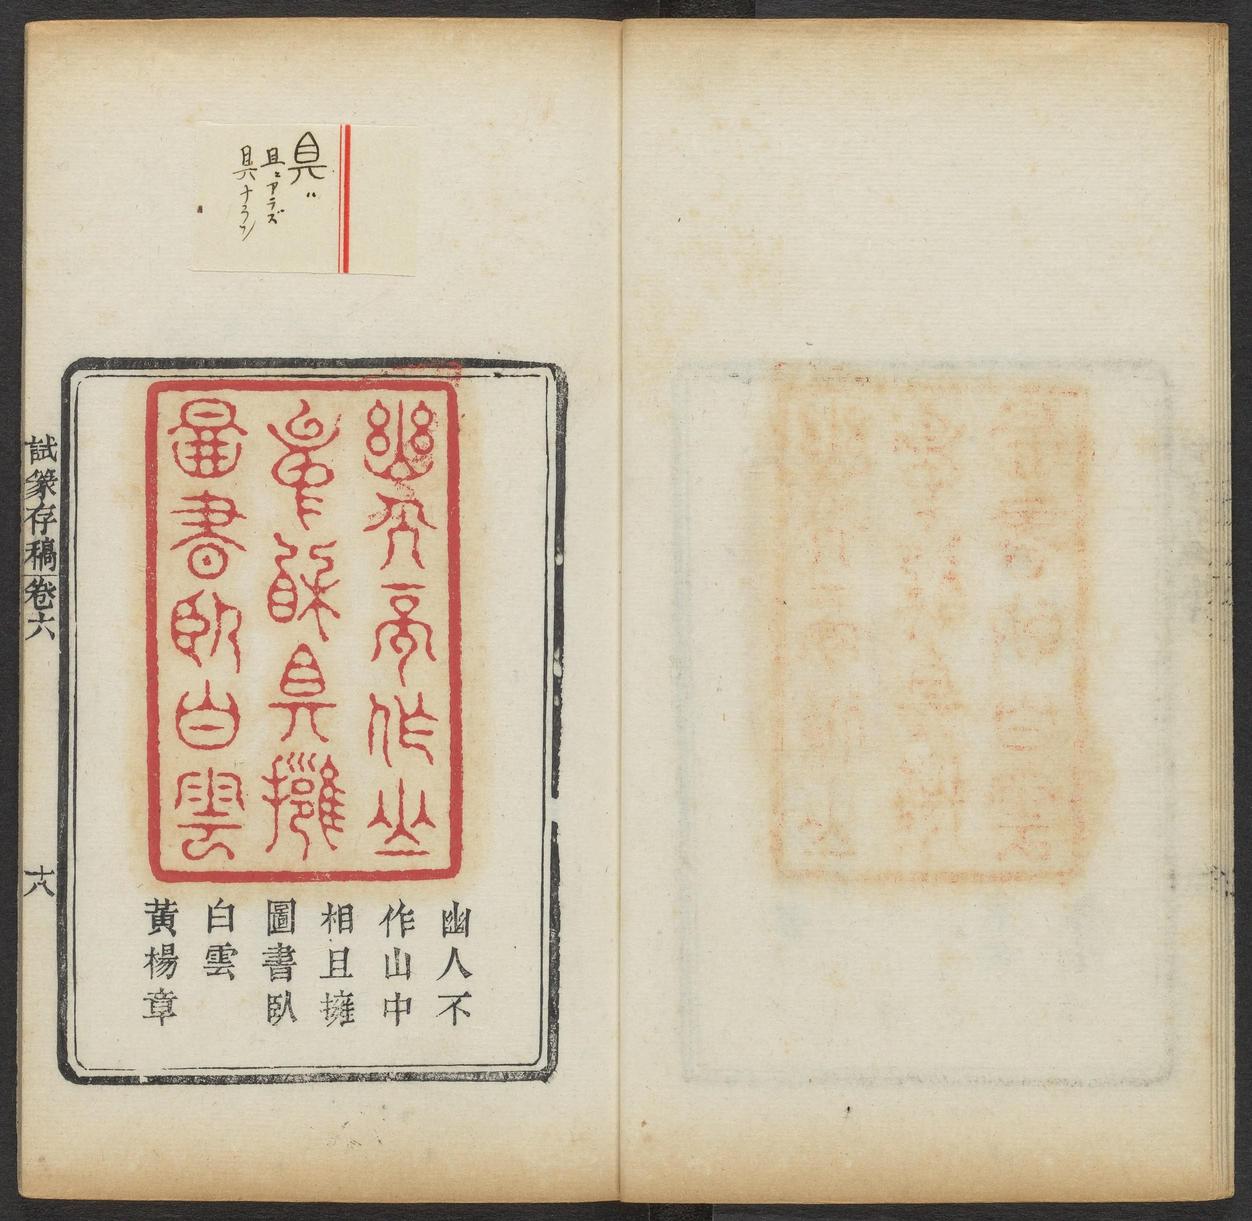 具〃
且ニアラズ
具ナラン
幽人不作山
中相且擁
圖書臥白雲
幽人不
作山中
相且擁
圖書臥
白雲
黃楊章
試篆存稿卷六
十八